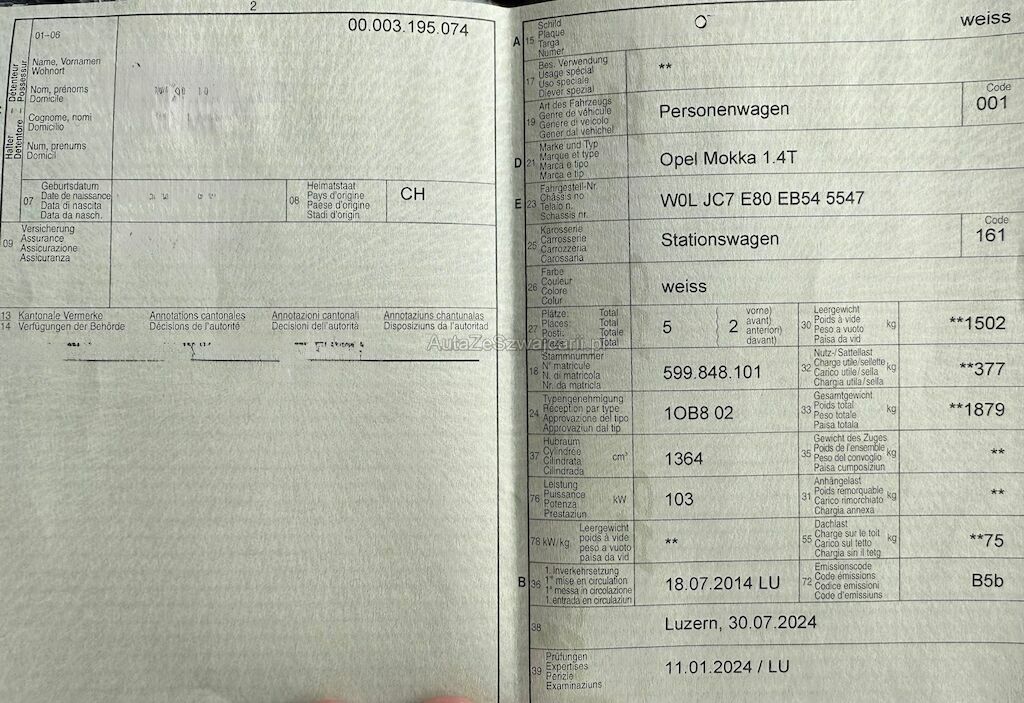 2
00.003.195.074
01-06
Halter Détenteur
Detentore Possessur
Name, Vornamen
Wohnort
Nom, prénoms
Domicile
Cognome, nomi
Domicilio
Num, prenums
Domicil
07
Geburtsdatum
Date de naissance
Data di nascita
Data da nasch.
08
Heimatstaat
Pays d'origine
Paese d'origine
Stadi d'origin
CH
09
Versicherung
Assurance
Assicurazione
Assicuranza
13 Kantonale Vermerke Annotations cantonales Annotazioni cantonali Annotaziuns chantunalas
14 Verfügungen der Behörde Décisions de l'autorité Decisioni dell'autorità Disposiziuns da l'autoritad
AutaZeSzwajcarii.pl
A 15
Schild
Plaque
Targa
Numer
weiss
17
Bes. Verwendung
Usage spécial
Uso speciale
Diever spezial
**
19
Art des Fahrzeugs
Genre de véhicule
Genere di veicolo
Gener dal vehichel
Personenwagen
Code
001
D 21
Marke und Typ
Marque et type
Marca e tipo
Marca e tip
Opel Mokka 1.4T
E 23
Fahrgestell-Nr.
Châssis no
Telaio n.
Schassis nr.
W0L JC7 E80 EB54 5547
25
Karosserie
Carrosserie
Carrozzeria
Carossaria
Stationswagen
Code
161
26
Farbe
Couleur
Colore
Colur
weiss
27
Plätze: Total
Places: Total
Posti: Totale
Total
5
2
vorne)
avant)
anteriori)
davant)
30
Leergewicht
Poids à vide
Peso a vuoto
Paisa da vid
kg
**1502
18
Stammnummer
N° matricule
N. di matricola
Nr. da matricla
599.848.101
32
Nutz-/Sattellast
Charge utile/sellette
Carico utile/sella
Chargia utila/sella
kg
**377
24
Typengenehmigung
Réception par type
Approvazione del tipo
Approvaziun dal tip
1OB8 02
33
Gesamtgewicht
Poids total
Peso totale
Paisa totala
kg
**1879
37
Hubraum
Cylindrée
Cilindrata
Cilindrada
cm³
1364
35
Gewicht des Zuges
Poids de l'ensemble
Peso del convoglio
Paisa cumposiziun
kg
**
76
Leistung
Puissance
Potenza
Prestaziun
kW
103
31
Anhängelast
Poids remorquable
Carico rimorchiato
Chargia annexa
kg
**
78 kW/kg
Leergewicht
poids à vide
peso a vuoto
paisa da vid
**
55
Dachlast
Charge sur le toit
Carico sul tetto
Chargia sin il tetg
kg
**75
B 36
1. Inverkehrsetzung
1re mise en circulation
1a messa in circolazione
1. entrada en circulaziun
18.07.2014 LU
72
Emissionscode
Code émissions
Codice emissioni
Code d'emissiuns
B5b
38
Luzern, 30.07.2024
39
Prüfungen
Expertises
Perizie
Examinaziuns
11.01.2024 / LU